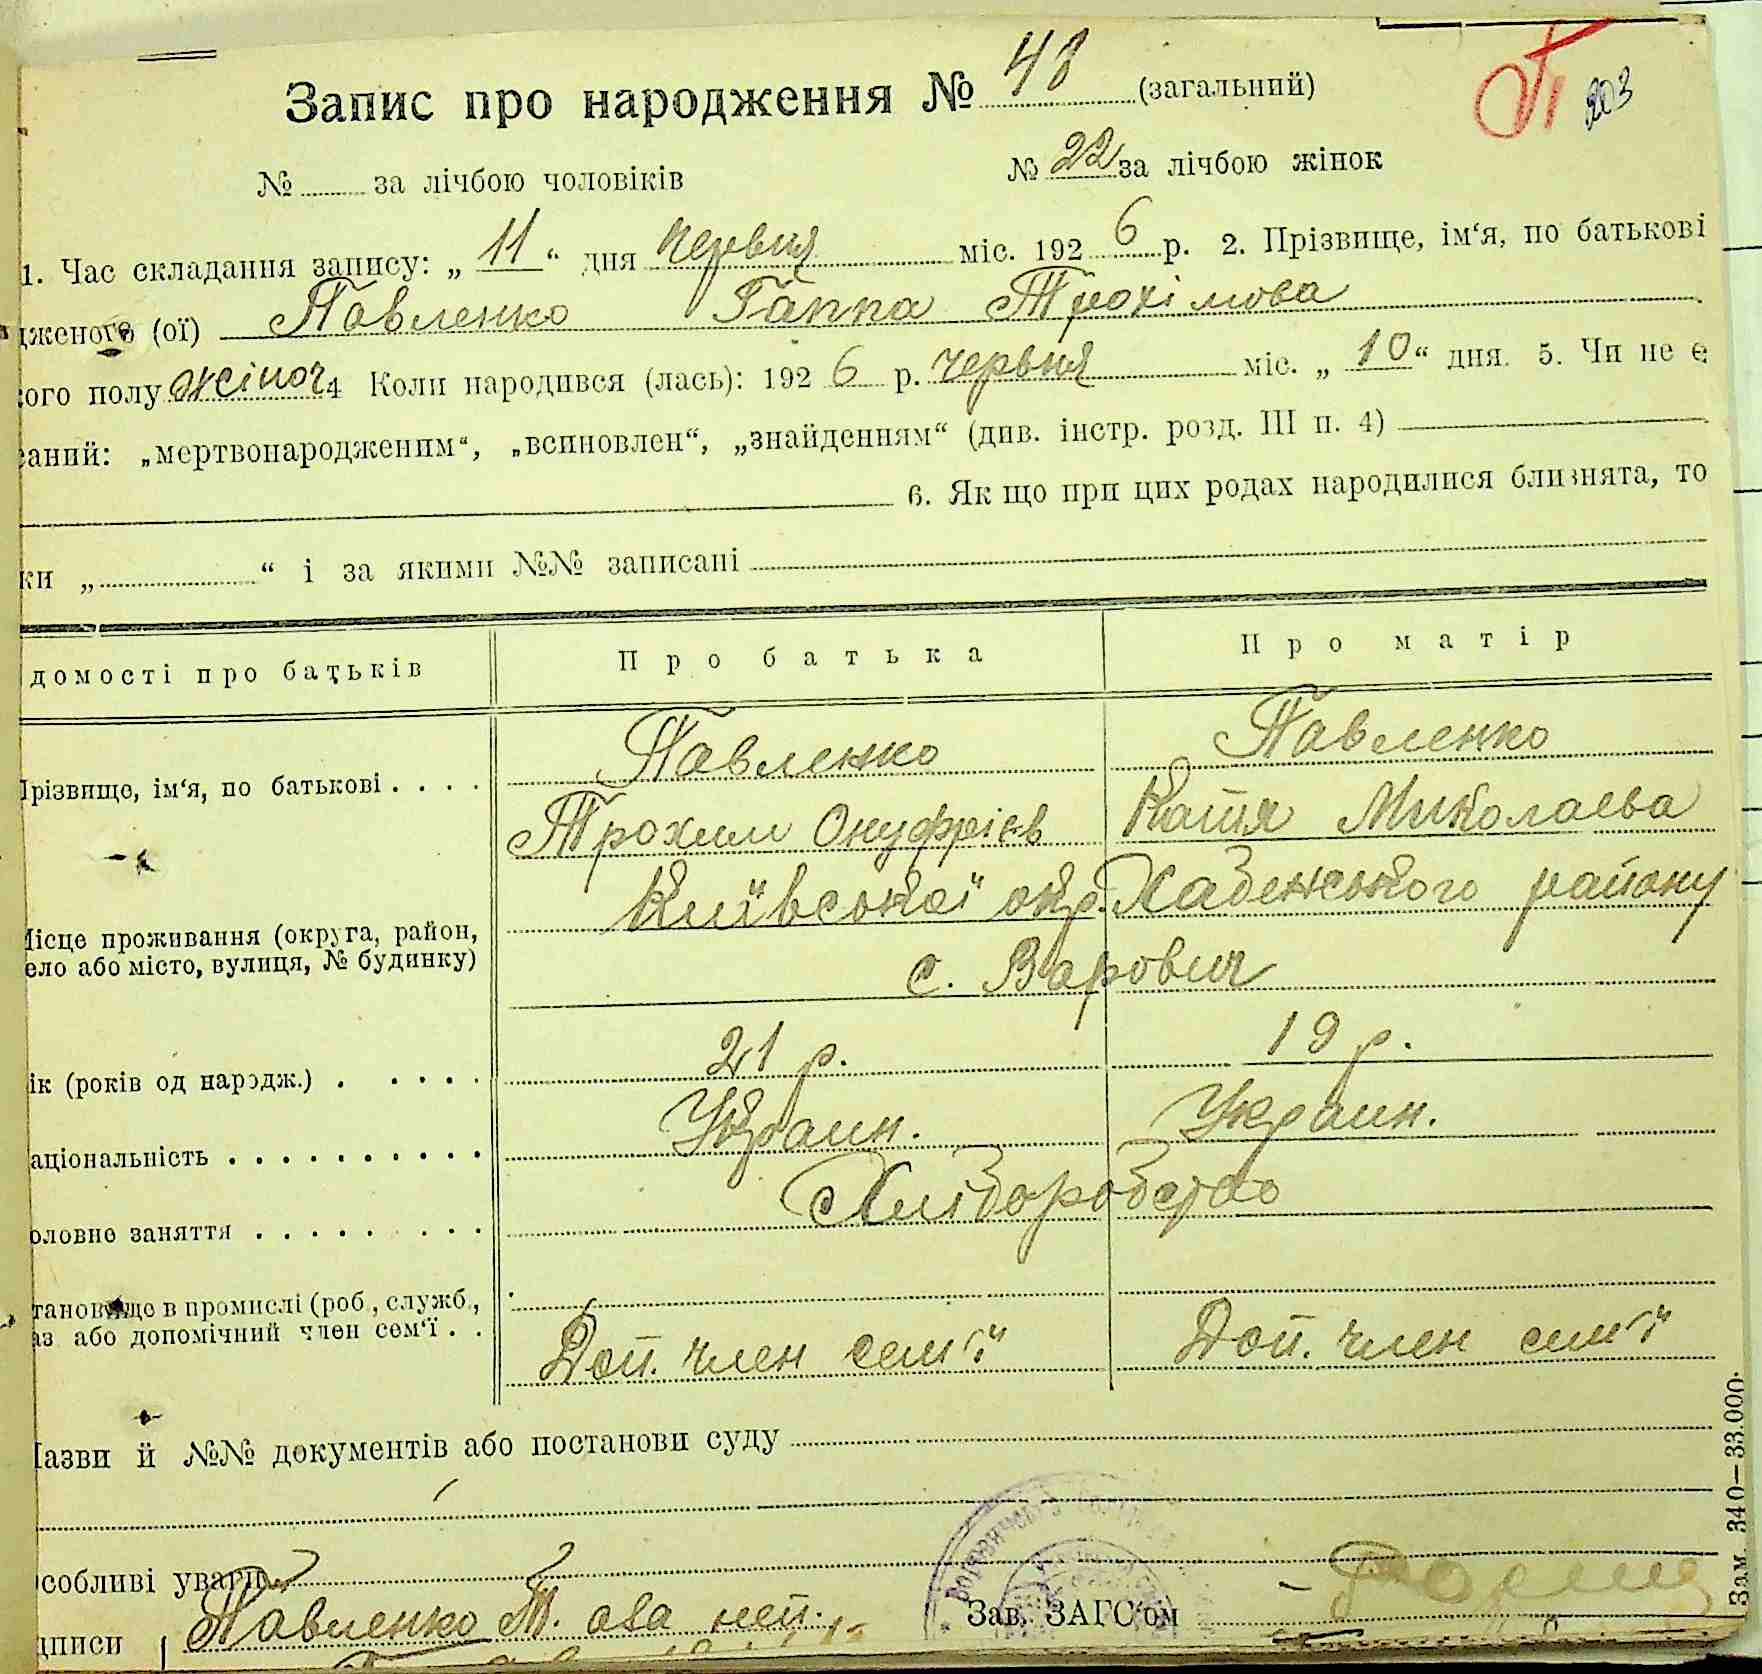 Запис про народження № 43 (загальний)
203
№ за лічбою чоловіків № 22 за лічбою жінок
1. Час складання запису: „ 11 “ дня червня міс. 192 6 р. 2. Прізвище, ім‘я, по батькові
дженого (ої) Павленко Ганна Трохімова
ого полу жіноч 4 Коли народився (лась): 192 6 р. червня міс. „ 10 “ дня. 5. Чи не є
саний: „мертвонародженим“, „всиновлен“, „знайденням“ (див. інстр. розд. III п. 4)
6. Як що при цих родах народилися близнята, то
ки „ “ і за якими №№ записані
домості про батьків Про батька Про матір
Прізвище, ім‘я, по батькові . . . . Павленко Павленко
Трохим Онуфріев Катя Миколаева
Місце проживання (округа, район, Київської окр. Хабенського району
ело або місто, вулиця, № будинку) с. Варович
ік (років од народж.) . . . . . 21 р. 19 р.
аціональність . . . . . . . . . . Украин. Украин.
оловне заняття . . . . . . . . Хліборобство
тановище в промислі (роб., служб.,
аз або допомічний член сем‘ї . . Доп. член сем‘ї Доп. член сем‘ї
Назви й №№ документів або постанови суду
Особливі уваги
дписи Павленко Т. ова неп.
Зав. ЗАГС‘ом
Зам. 340—33.000.